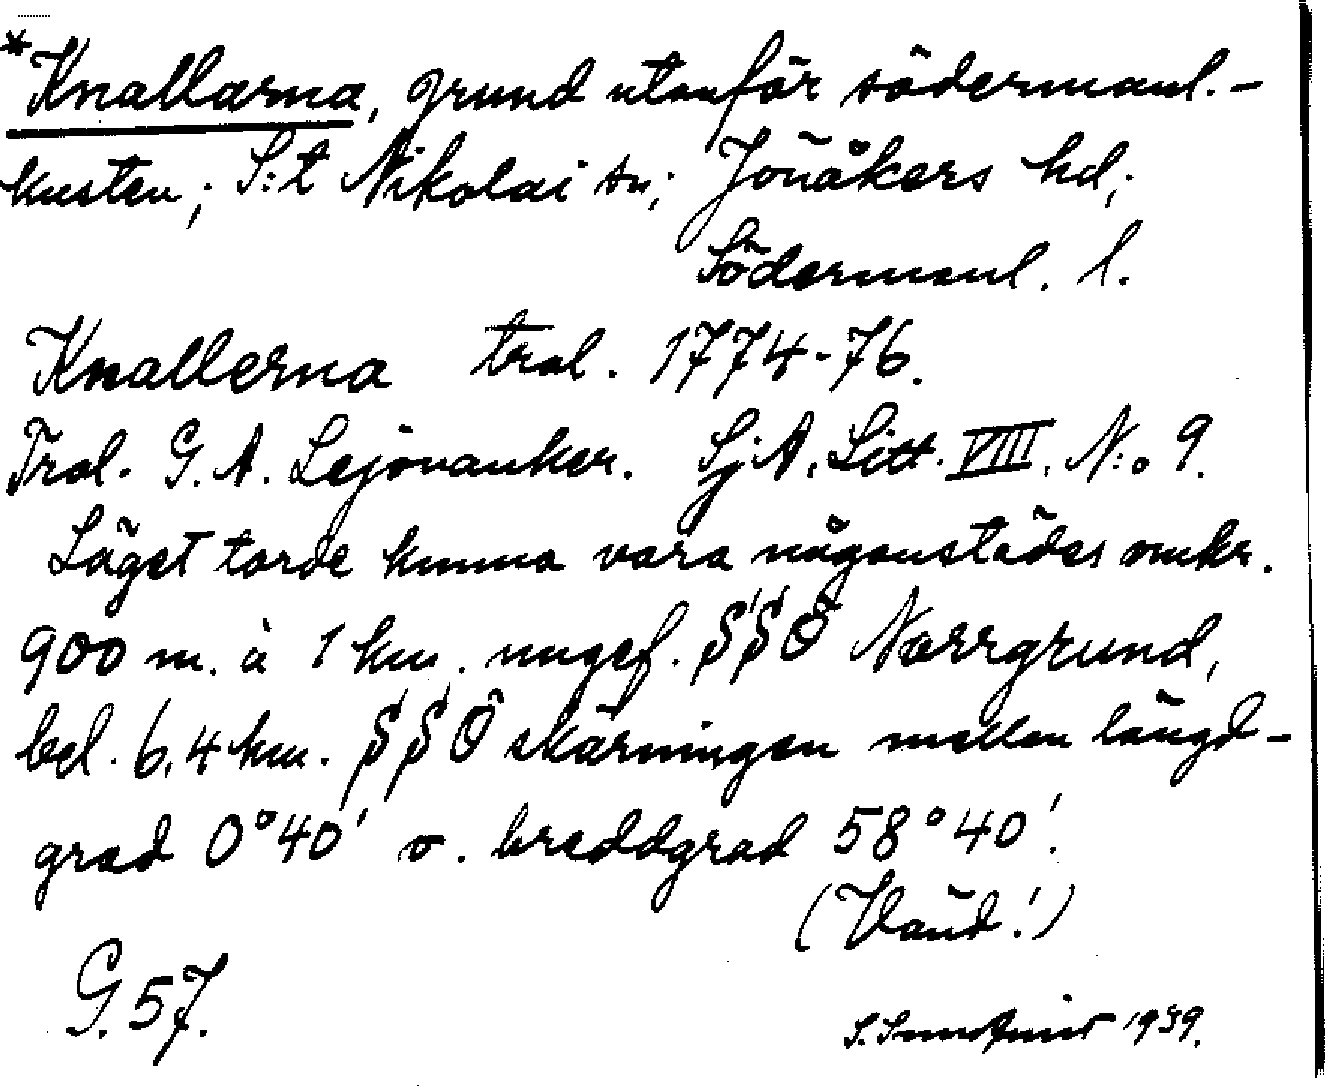 *Knallarna, grund utanför södermanl.-
kusten; S:t Nikolai sn; Jönåkers hd;
Södermanl. l.
Knallerna trol. 1774-76.
Trol. G. A. Lejonanker. SjA. Litt. VIII, N:o 9.
Läget torde kunna vara någonstädes omkr.
900 m. à 1 km. ungef. SSÖ Norrgrund,
bel. 6,4 km. SSÖ skärningen mellan längd-
grad 0°40' o. breddgrad 58°40'.
(Vänd!)
G. 57.
S. 1939.